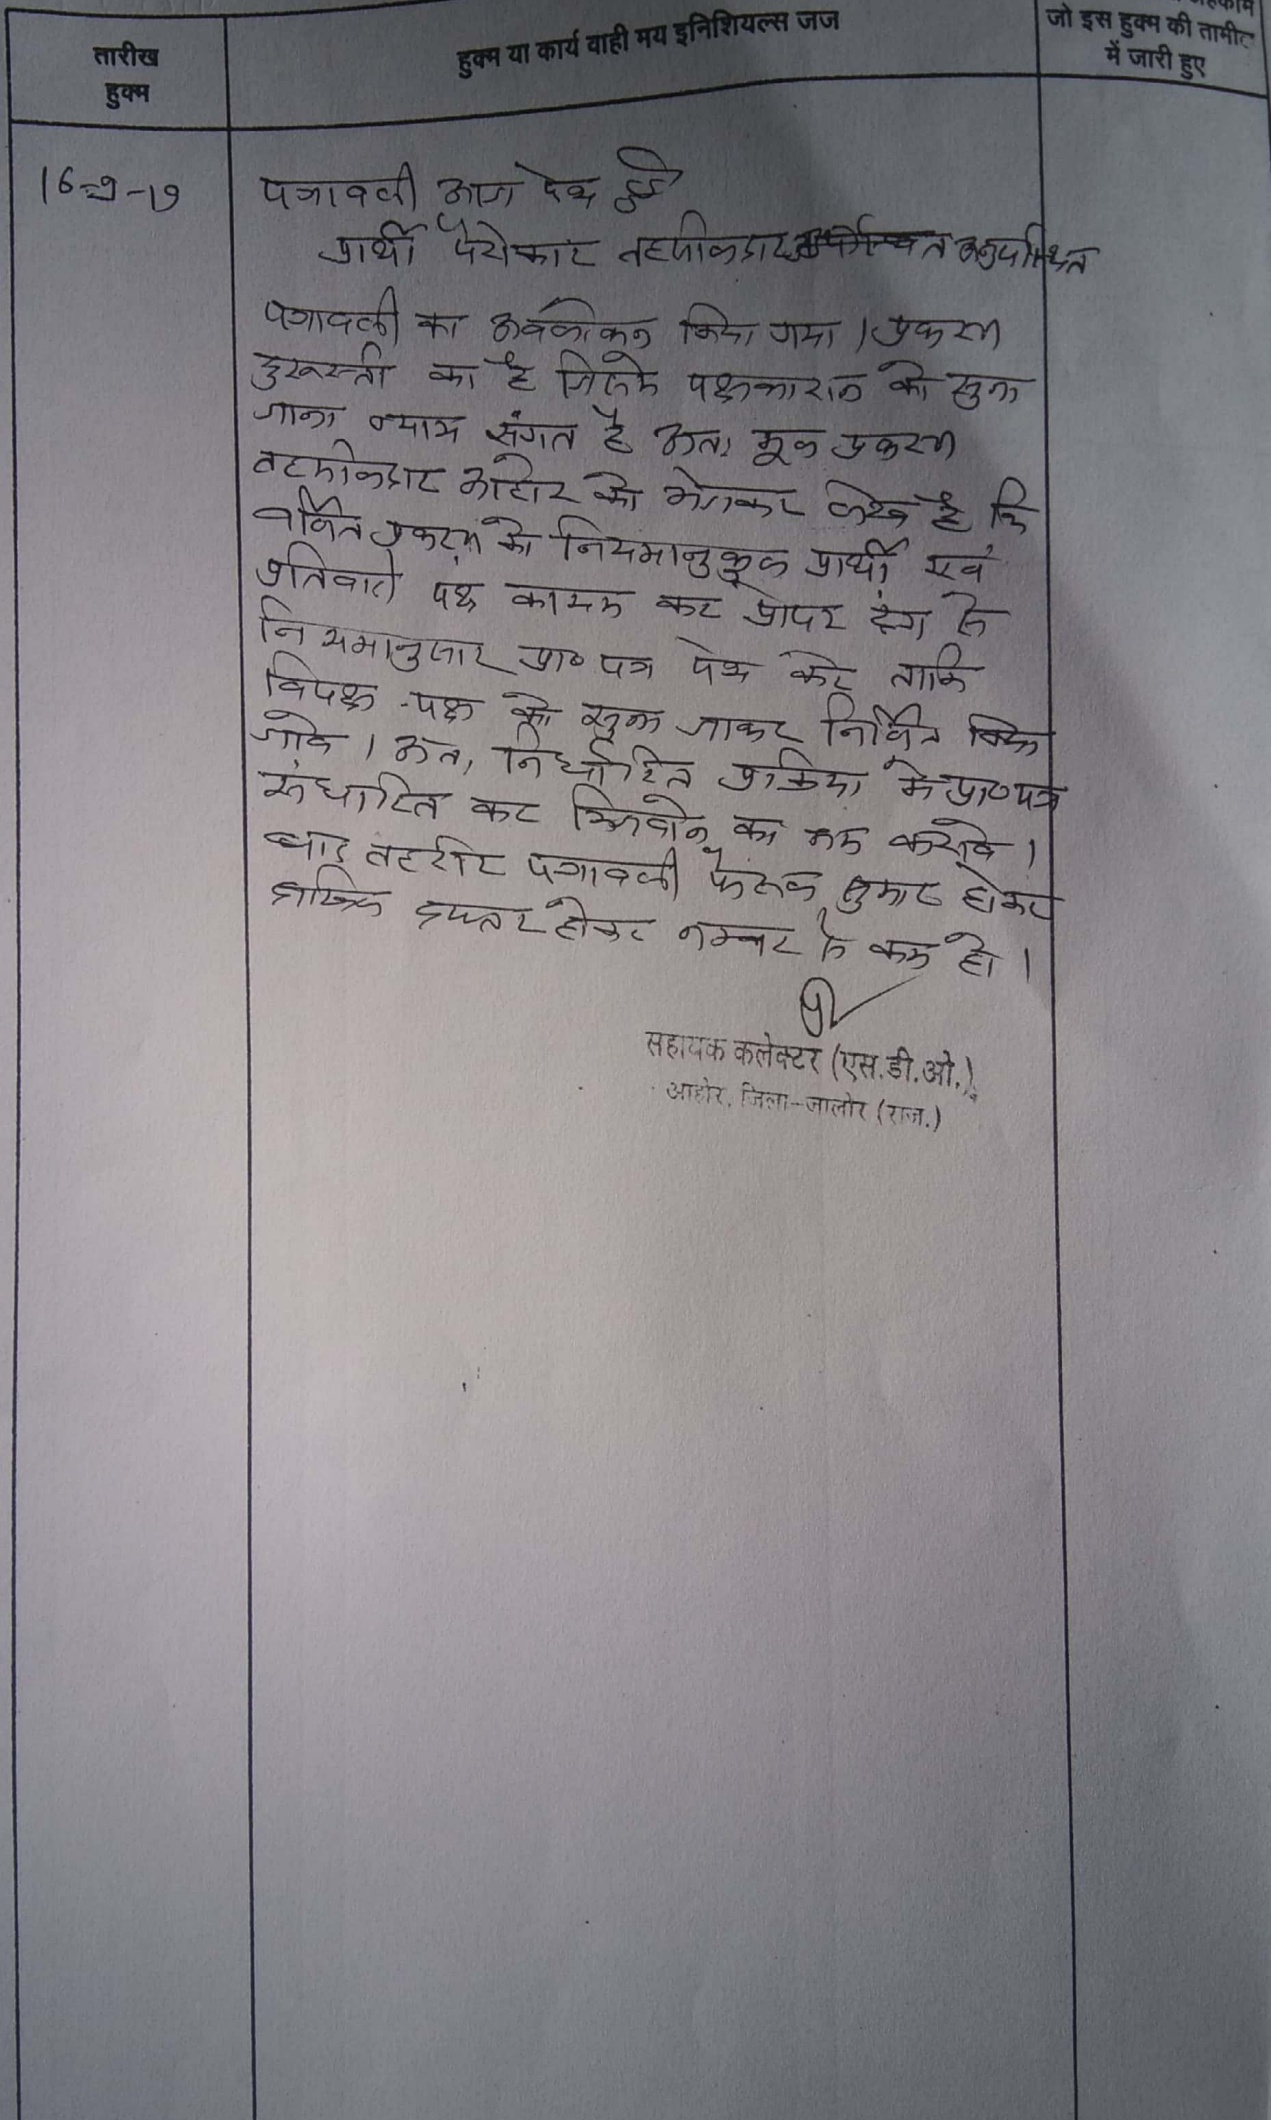 अहकाम
तारीख
हुक्म
हुक्म या कार्य वाही मय इनिशियल्स जज
जो इस हुक्म की तामील
में जारी हुए
16-9-19
पत्रावली आज पेश हुई
प्रार्थी पैरोकार तहसीलदार अनुपस्थित
पत्रावली का अवलोकन किया गया । प्रकरण
दुरूस्ती का है जिसमें पक्षकारान को सुना
जाना न्याय संगत है अतः मूल प्रकरण
तहसीलदार आहोर को भेजकर लेख है कि
वर्णित प्रकरण को नियमानुकूल प्रार्थी एवं
प्रतिवादी पक्ष कायम कर प्रोपर ढंग से
नियमानुसार प्रा० पत्र पेश करे ताकि
विपक्ष पक्ष को सुना जाकर निर्णित किया
जावे । अतः निर्धारित प्रक्रिया में प्रा०पत्र
संधारित कर का करावे ।
बाद तहरीर पत्रावली फैसल सुमार होकर
दाखिल दफ्तर होकर नम्बर से कम हो ।
सहायक कलेक्टर (एस.डी.ओ.)
आहोर, जिला-जालोर (राज.)